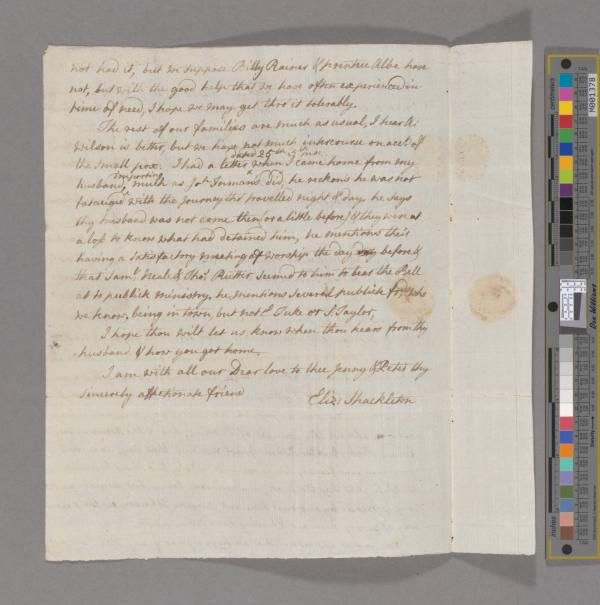 not had it, but we suppose Billy Rainer & prentice Albe have
not, but with the good help that we have often experienced in
time of need, I hope we may get thro it tolerably.
The rest of our families are much as usual, I hear R:
Wilson is better, but we have not much intercourse on acct. of
the small pox. I had a letter dated 25th when I came home from my
husband, importing much as Jos. Inman's did, he reckons he was not
fataigued with the journey tho' travelled night & day. he says
thy husband was not come then (or a little before) & they were at
a loss to know what had detained him, he mentions their
having a satisfactory meeting of worship the day before &
that Saml. Neale & Thos. Rutter seemed to him to bear the Bell
as to publick ministry. he mentions several publick frds. who
we know, being in town, but not E Tuke or S: Taylor,
I hope thou wilt let us know when thou hears from thy
husband & how you get home.
I am with all our Dear love to thee Jenny & Peter thy
sincerely affectionate friend
Eliz: Shackleton
centimetres
M001378
Don Williams
inches
Density